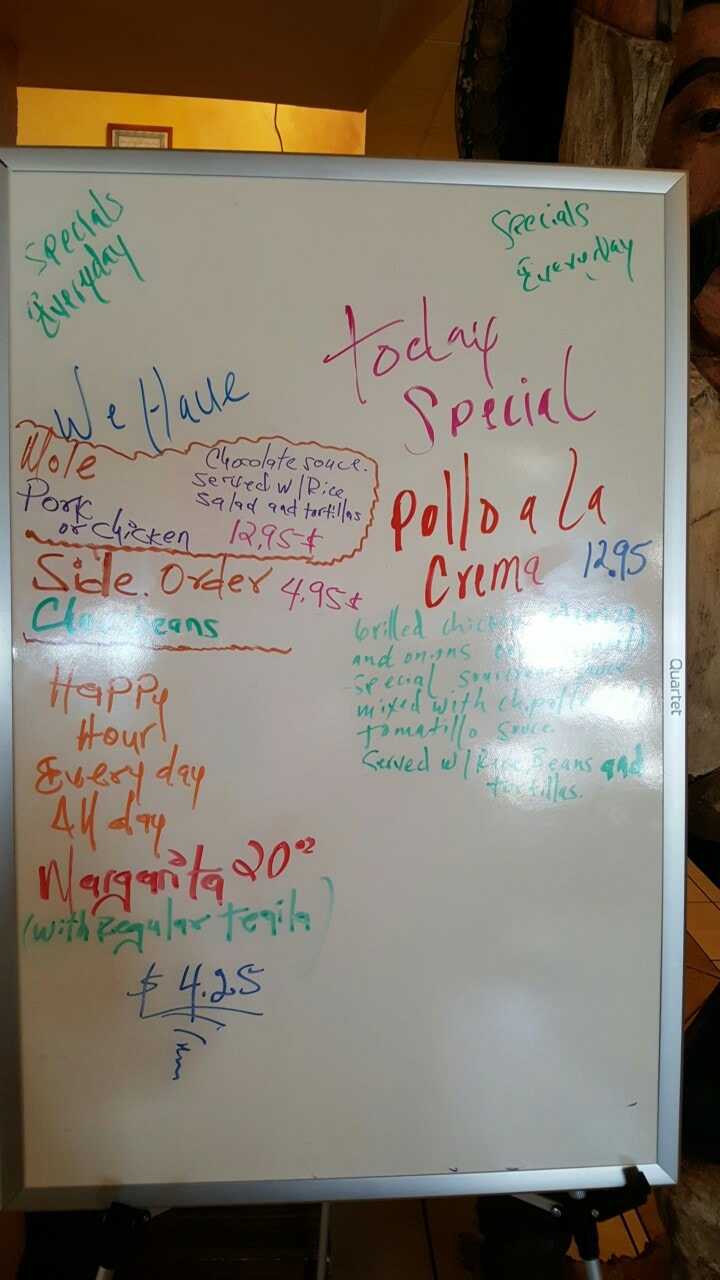 Specials
Everyday
Specials
Everyday
We Have
Mole
Pork
or chicken
Chocolate souce.
Served w/Rice
Salad and tortillas
12,95$
Side. Order 4.95$
beans
Happy
Hour
Every day
All day
Margarita 20oz
(with Regular Teqila)
$ 4.25
Today
Special
Pollo a la
Crema 12.95
Grilled
and onions
special
mixed with
tomatillo souce.
Served w/Rice, Beans and
tortillas.
Quartet